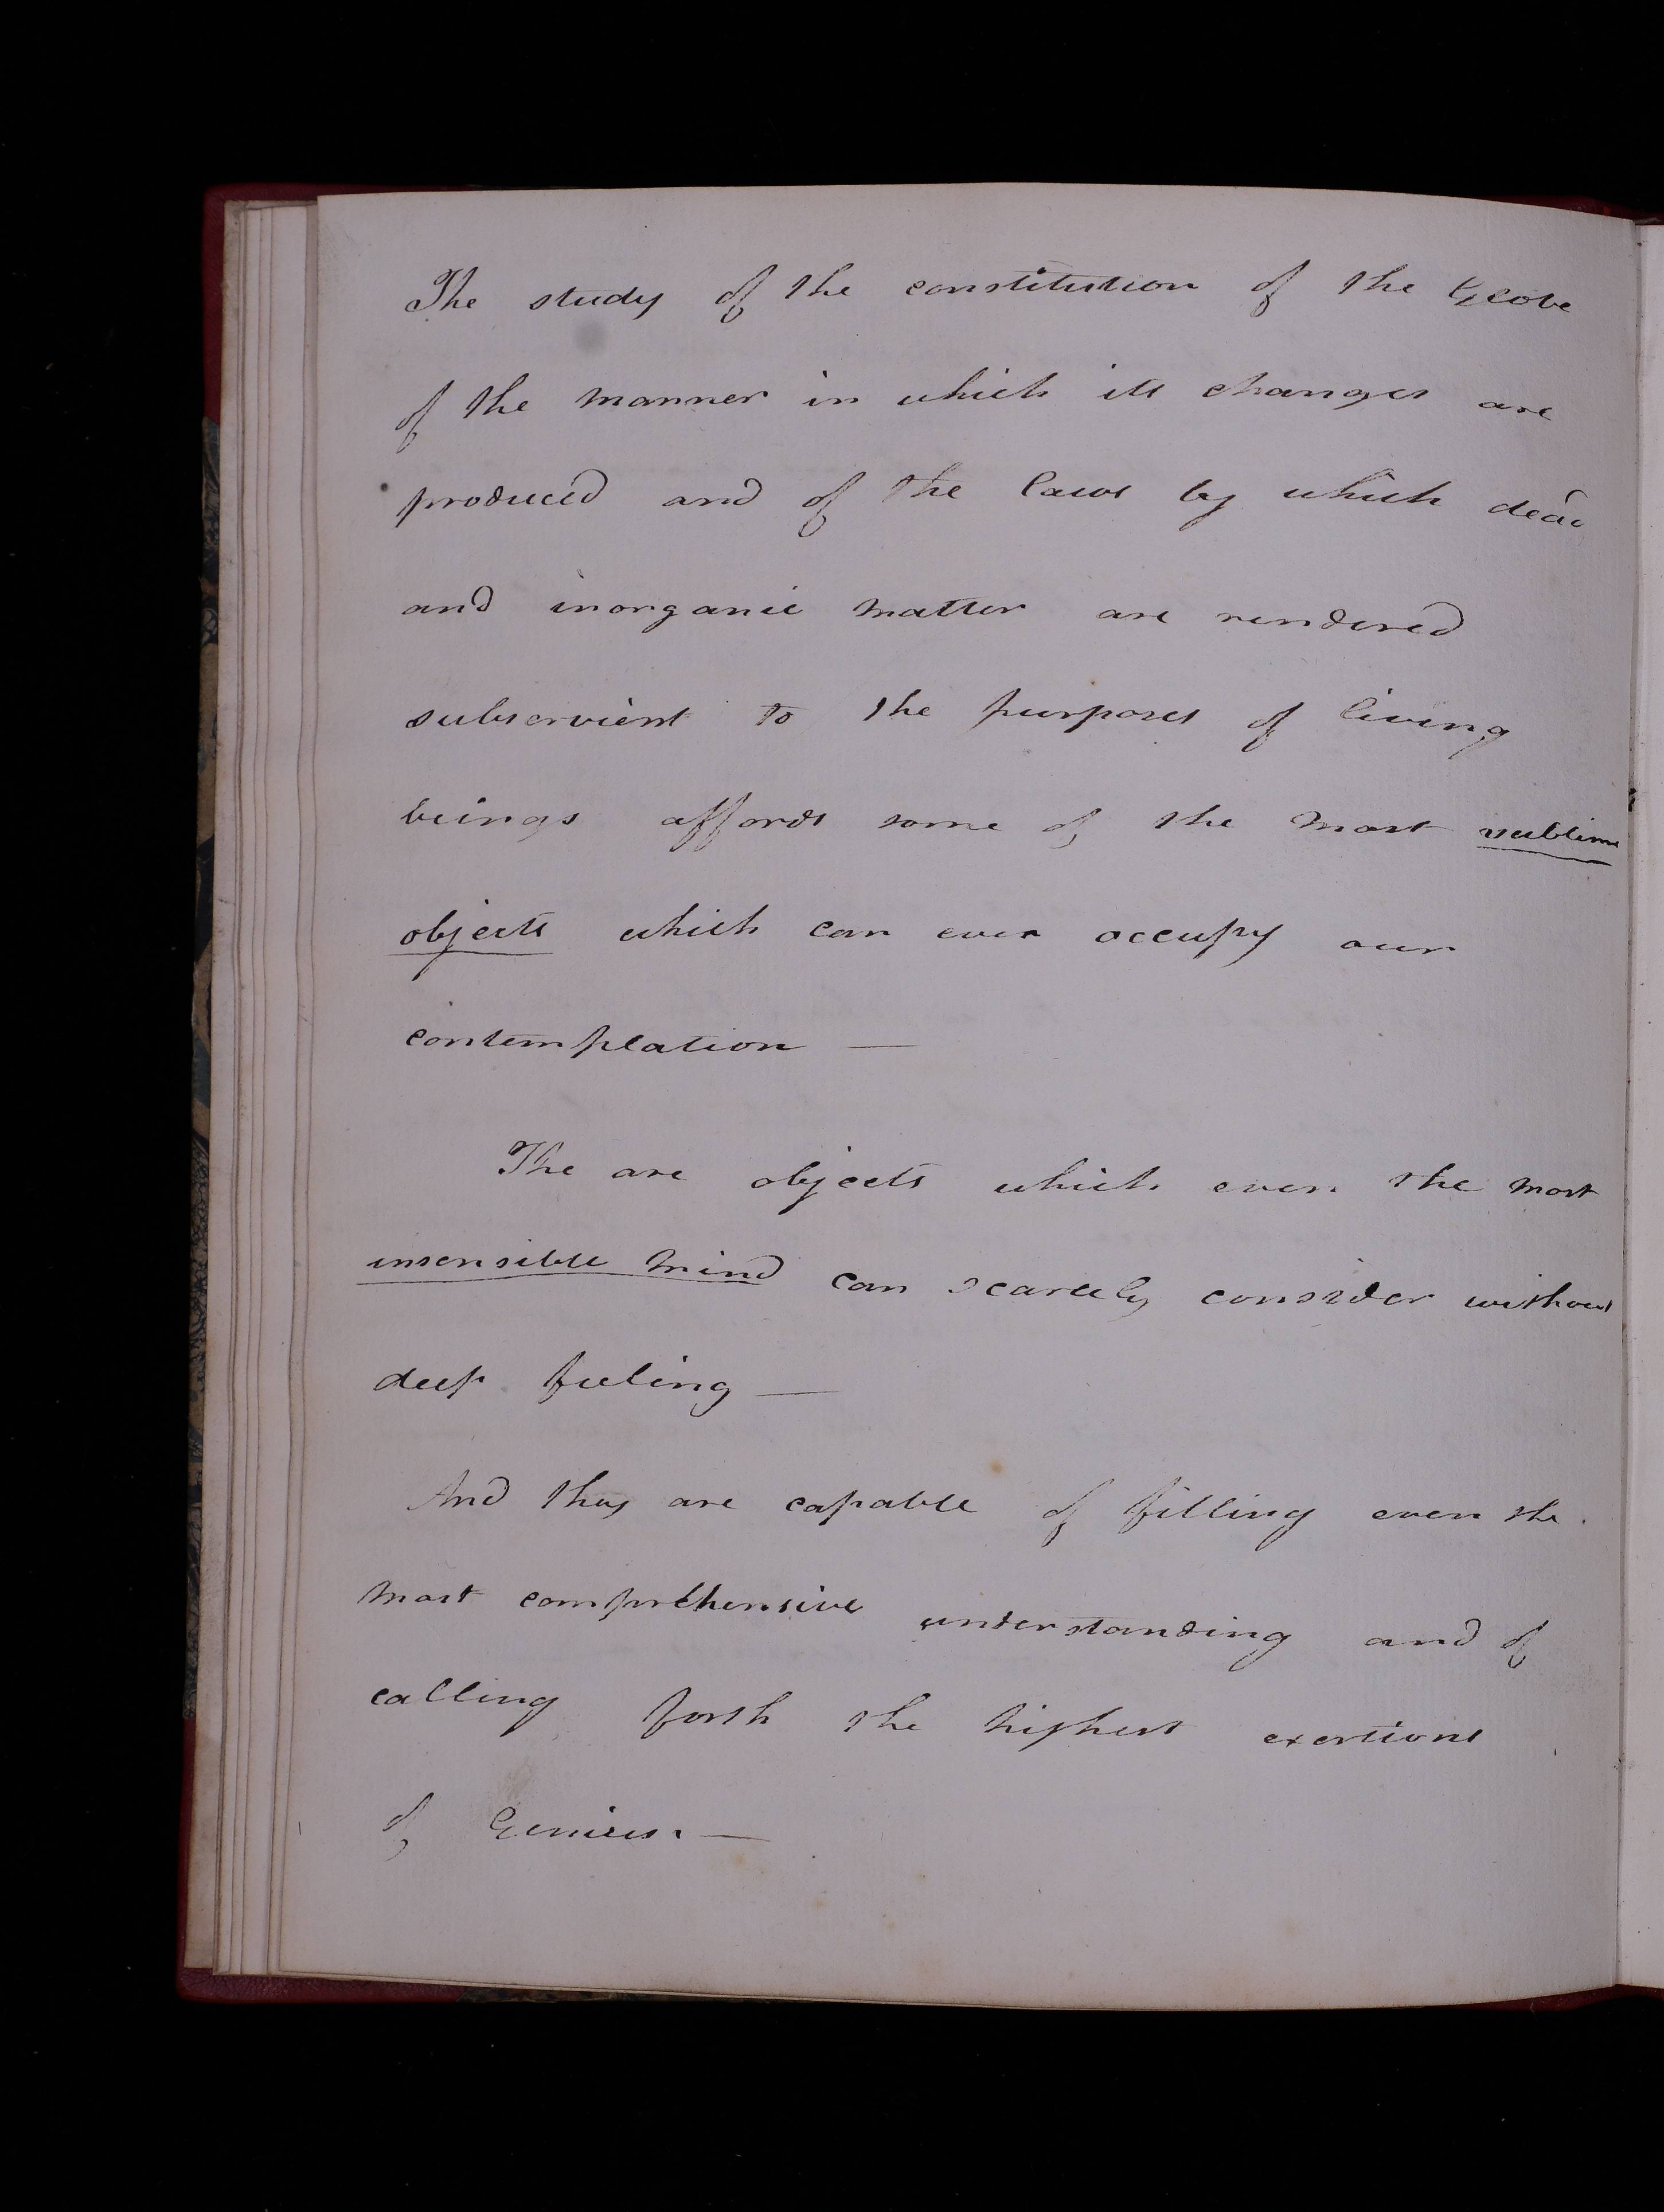 The study of the constitution of the Globe
of the manner in which its changes are
produced and of the laws by which dead
and inorganic matter are rendered
subservient to the purposes of living
beings affords some of the most sublime
objects which can ever occupy our
contemplation —
The are objects which even the most
insensible mind can scarcely consider without
deep feeling —
And they are capable of filling even the
most comprehensive understanding and of
calling forth the highest exertions
of Genius. —